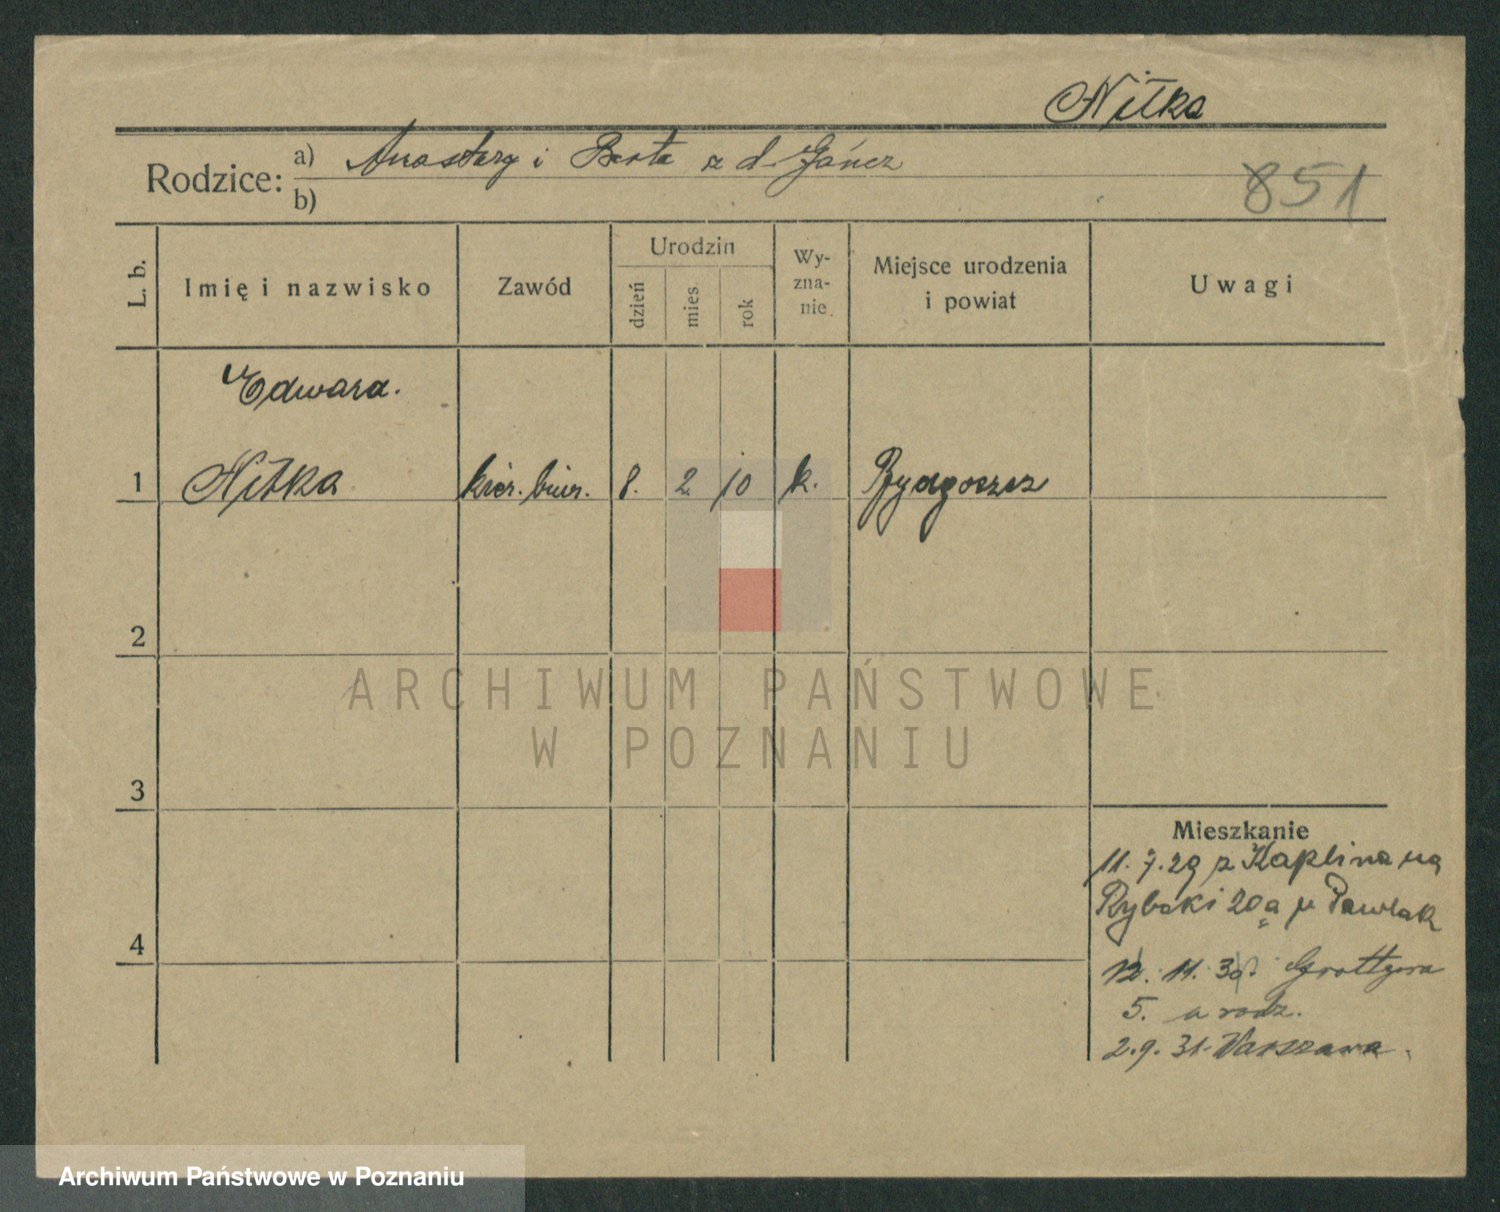 Nitka
Rodzice: a) Anastazy i Berta z d. Gańcz
b)
851
L. b.
Imię i nazwisko
Zawód
Urodzin
dzień
mies
rok
Wy-
zna-
nie
Miejsce urodzenia
i powiat
Uwagi
Edward.
1 Nitka kier. biur. 8. 2. 10 k. Bydgoszcz
2
3
4
Mieszkanie
11. 7. 29 z Kaplina na
Rybaki 20a u Pawlak
12. 11. 30. Grottgera
5. u rodz.
2.9.31. Warszawa.
ARCHIWUM PAŃSTWOWE
W POZNANIU
Archiwum Państwowe w Poznaniu